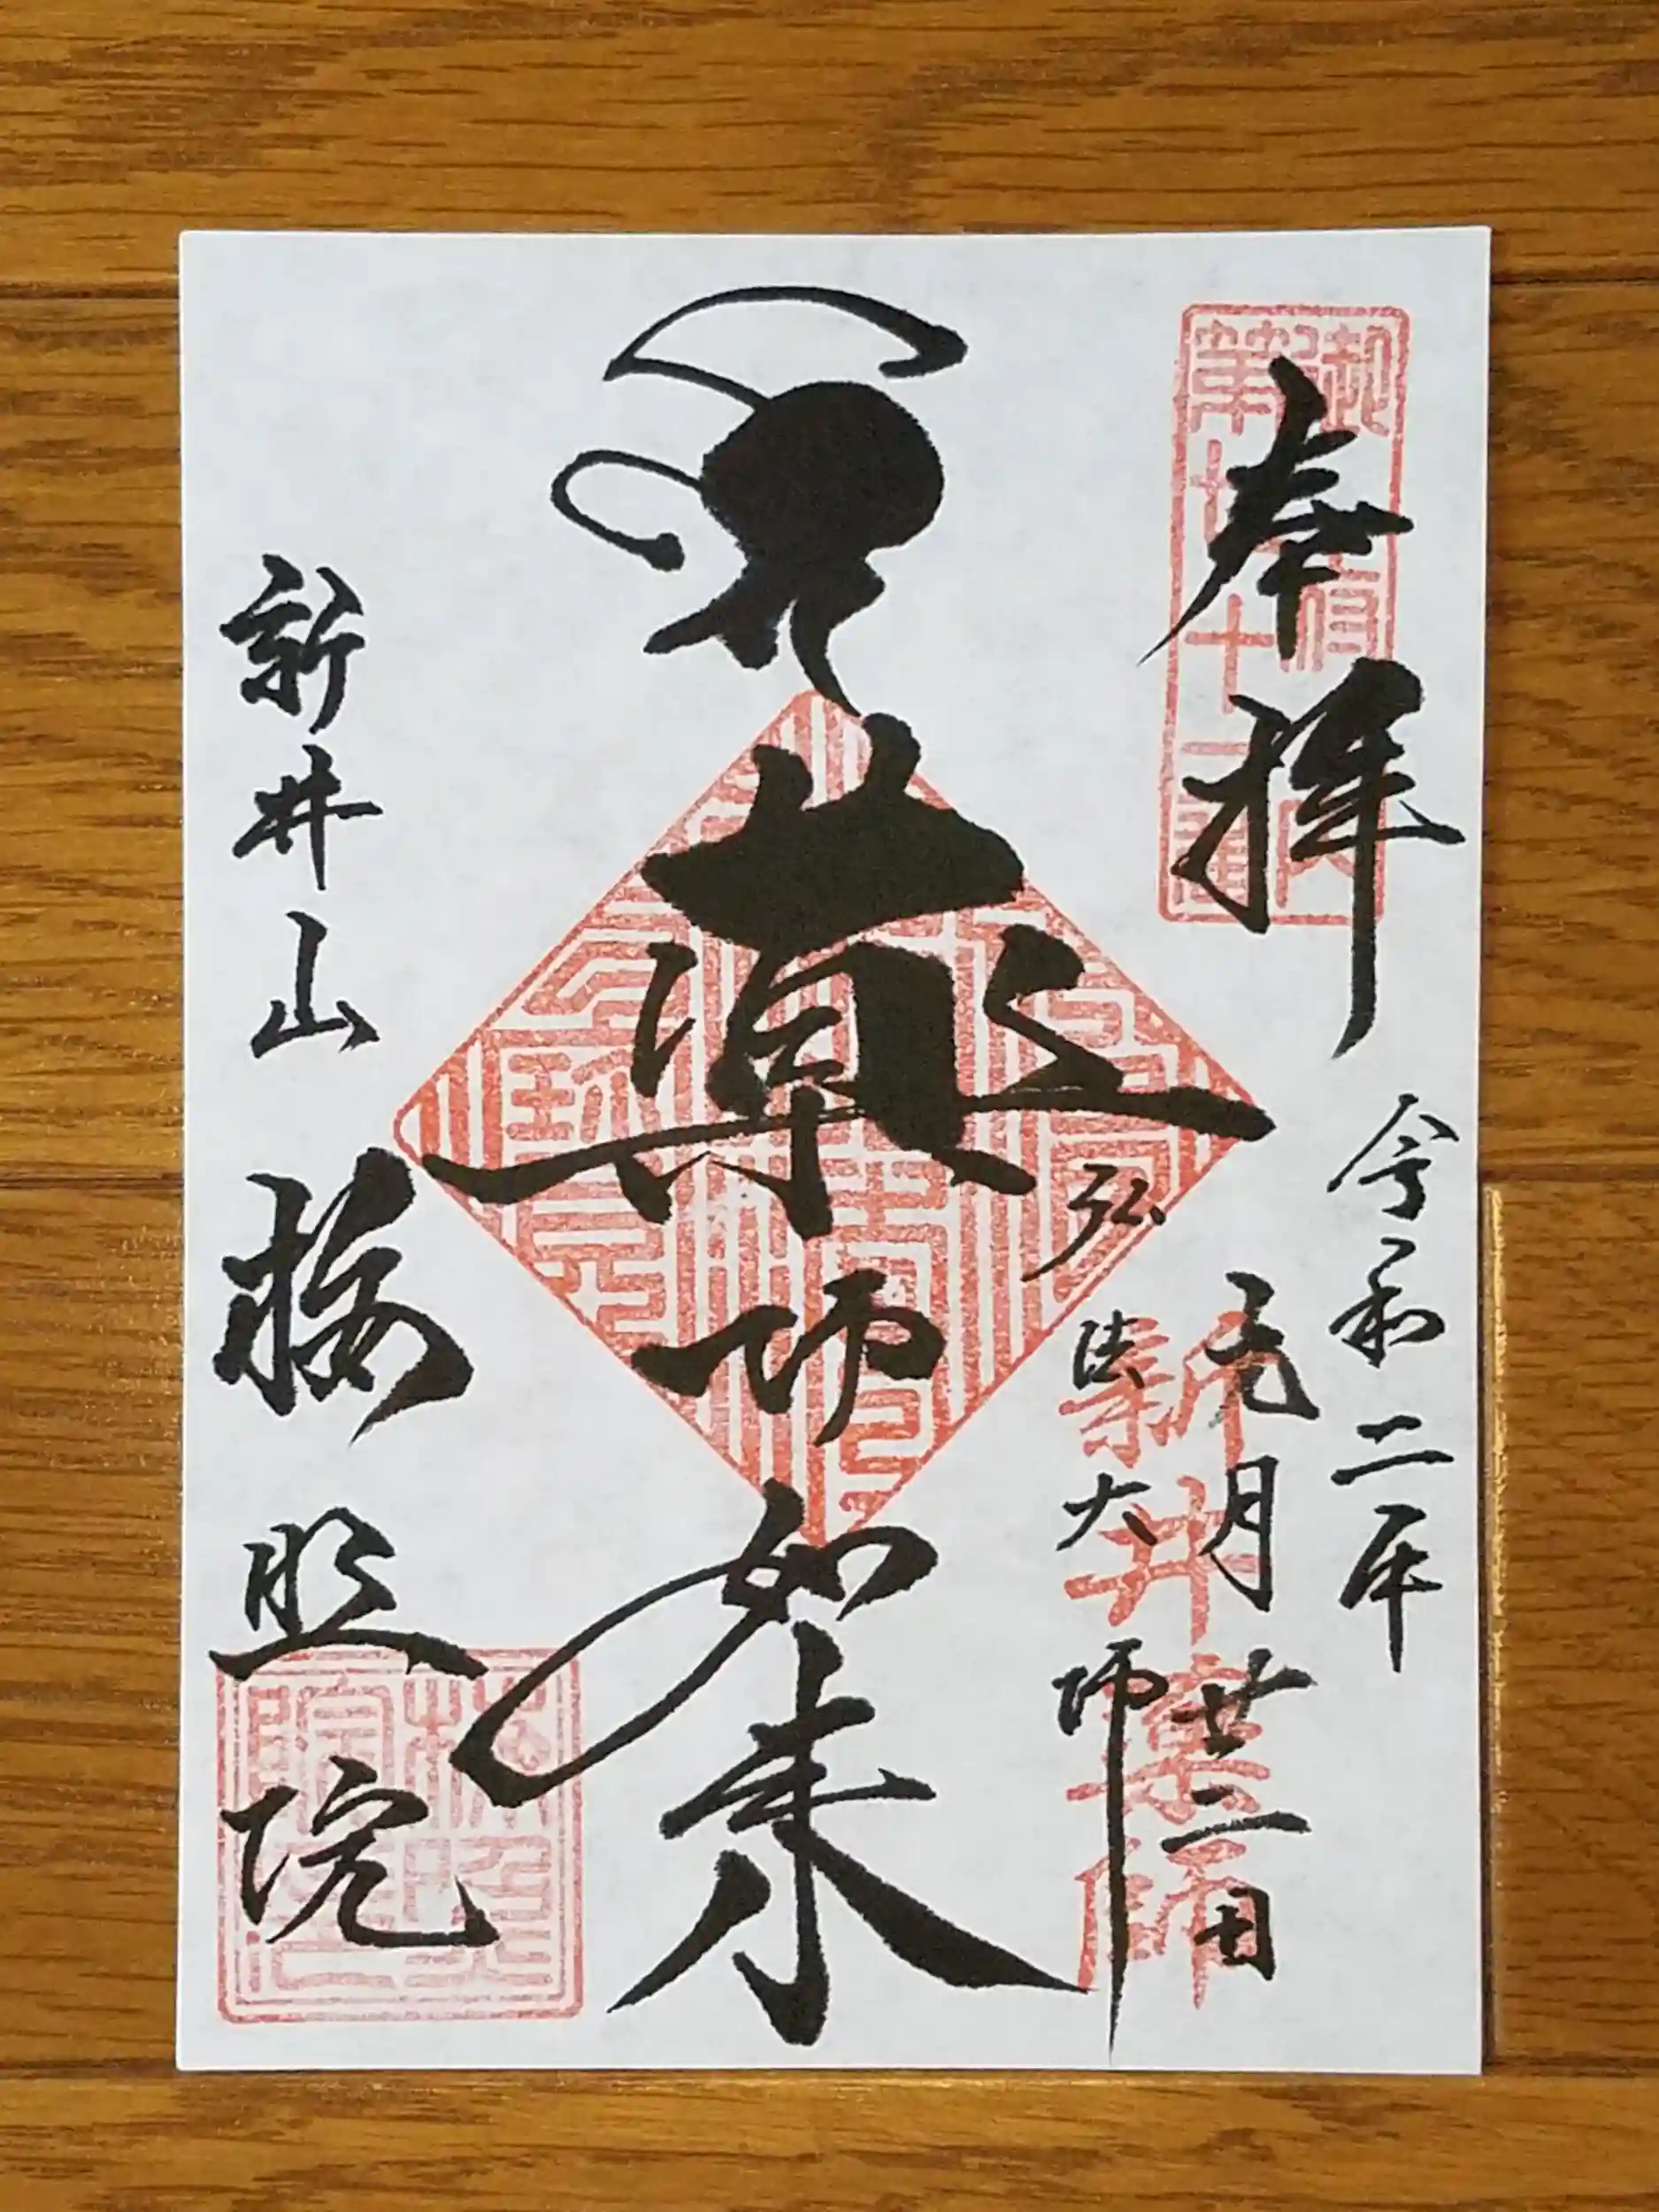 奉拝
令和二年
元月廿二日
弘法大師
薬師如来
新井山
梅照院
新井
薬師